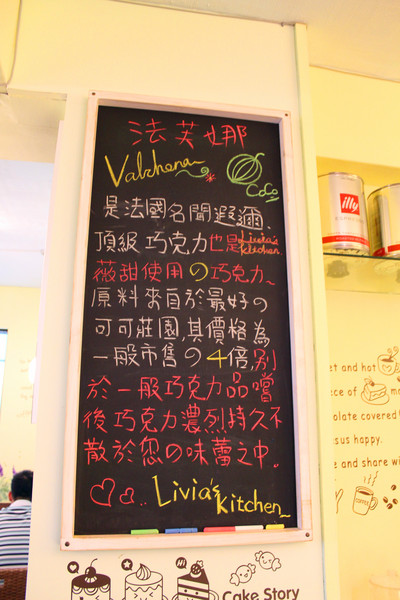 法芙娜
Valrhona
CoCo
是法國名聞遐邇、
頂級巧克力也是Livia's
kitchen.
薇甜使用の巧克力~
原料來自於最好の
可可莊園,其價格為
一般市售の4倍,別
於一般巧克力品嚐
後巧克力濃烈持久不
散於您の味蕾之中。
Livia's kitchen~
illy
Hi
Cake Story
et and hot
ce of
olate covered
sus happy.
e and share wi